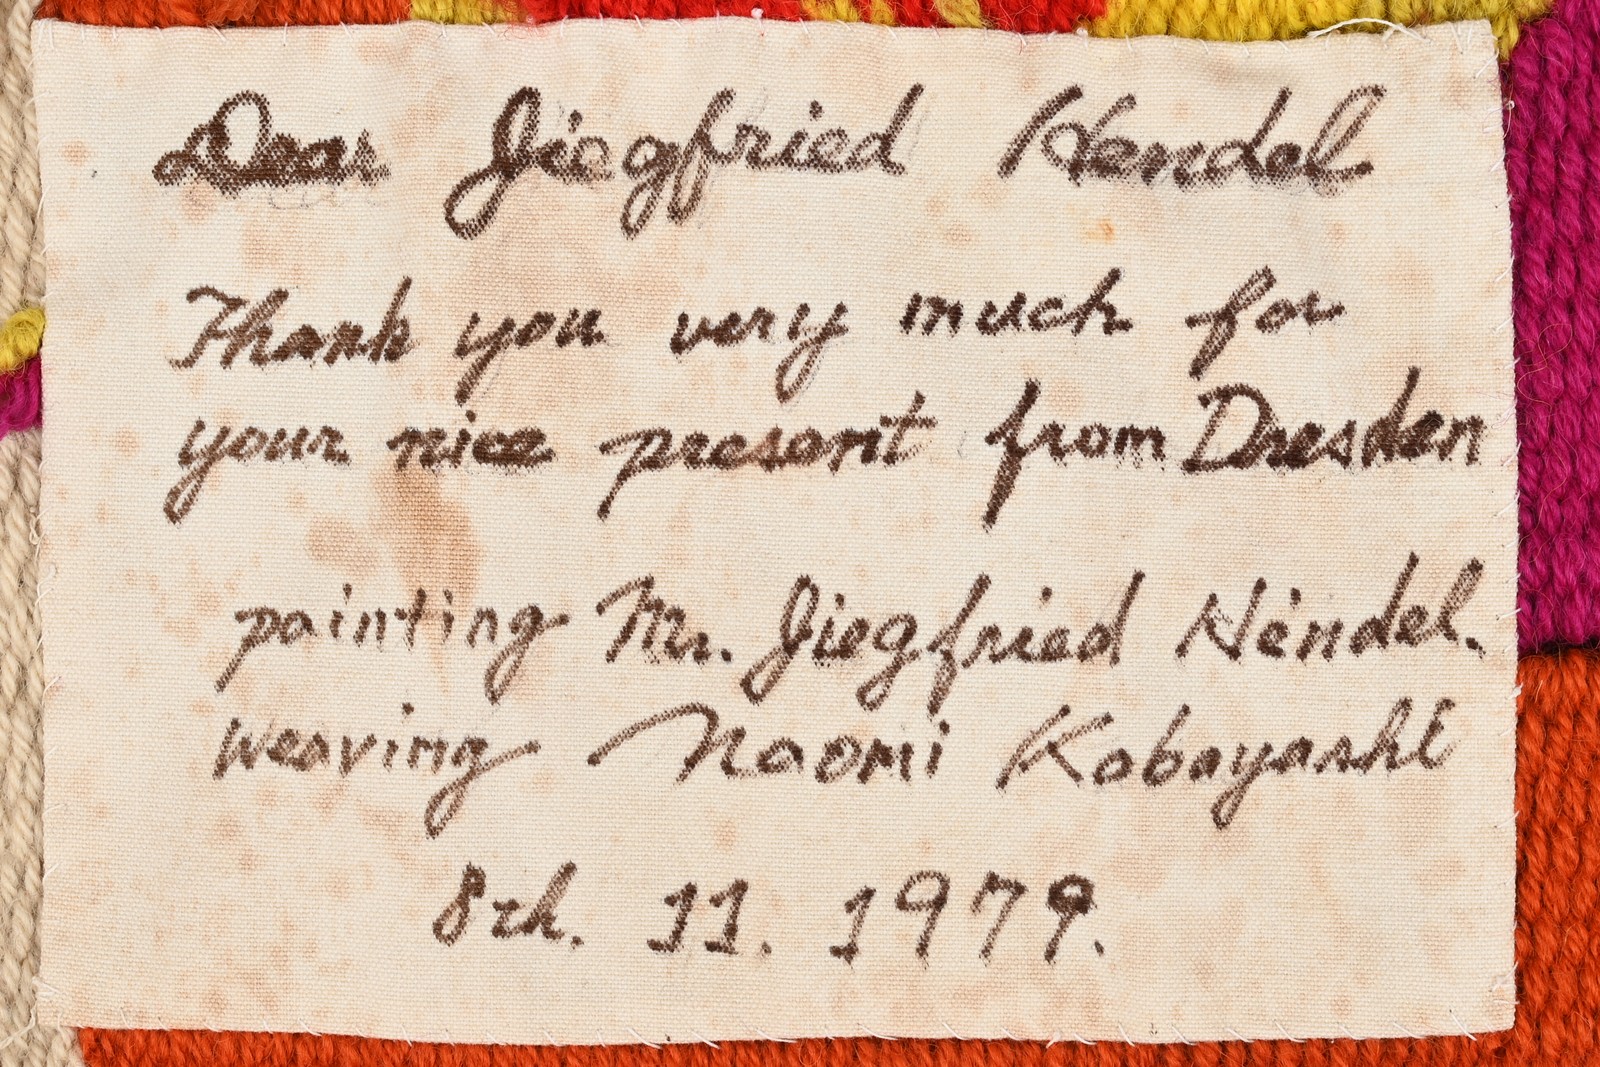 Dear Siegfried Hendel
Thank you very much for
your nice present from Dresden
painting Mr. Siegfried Hendel.
weaving Naomi Kobayashi
8th. 11. 1979.